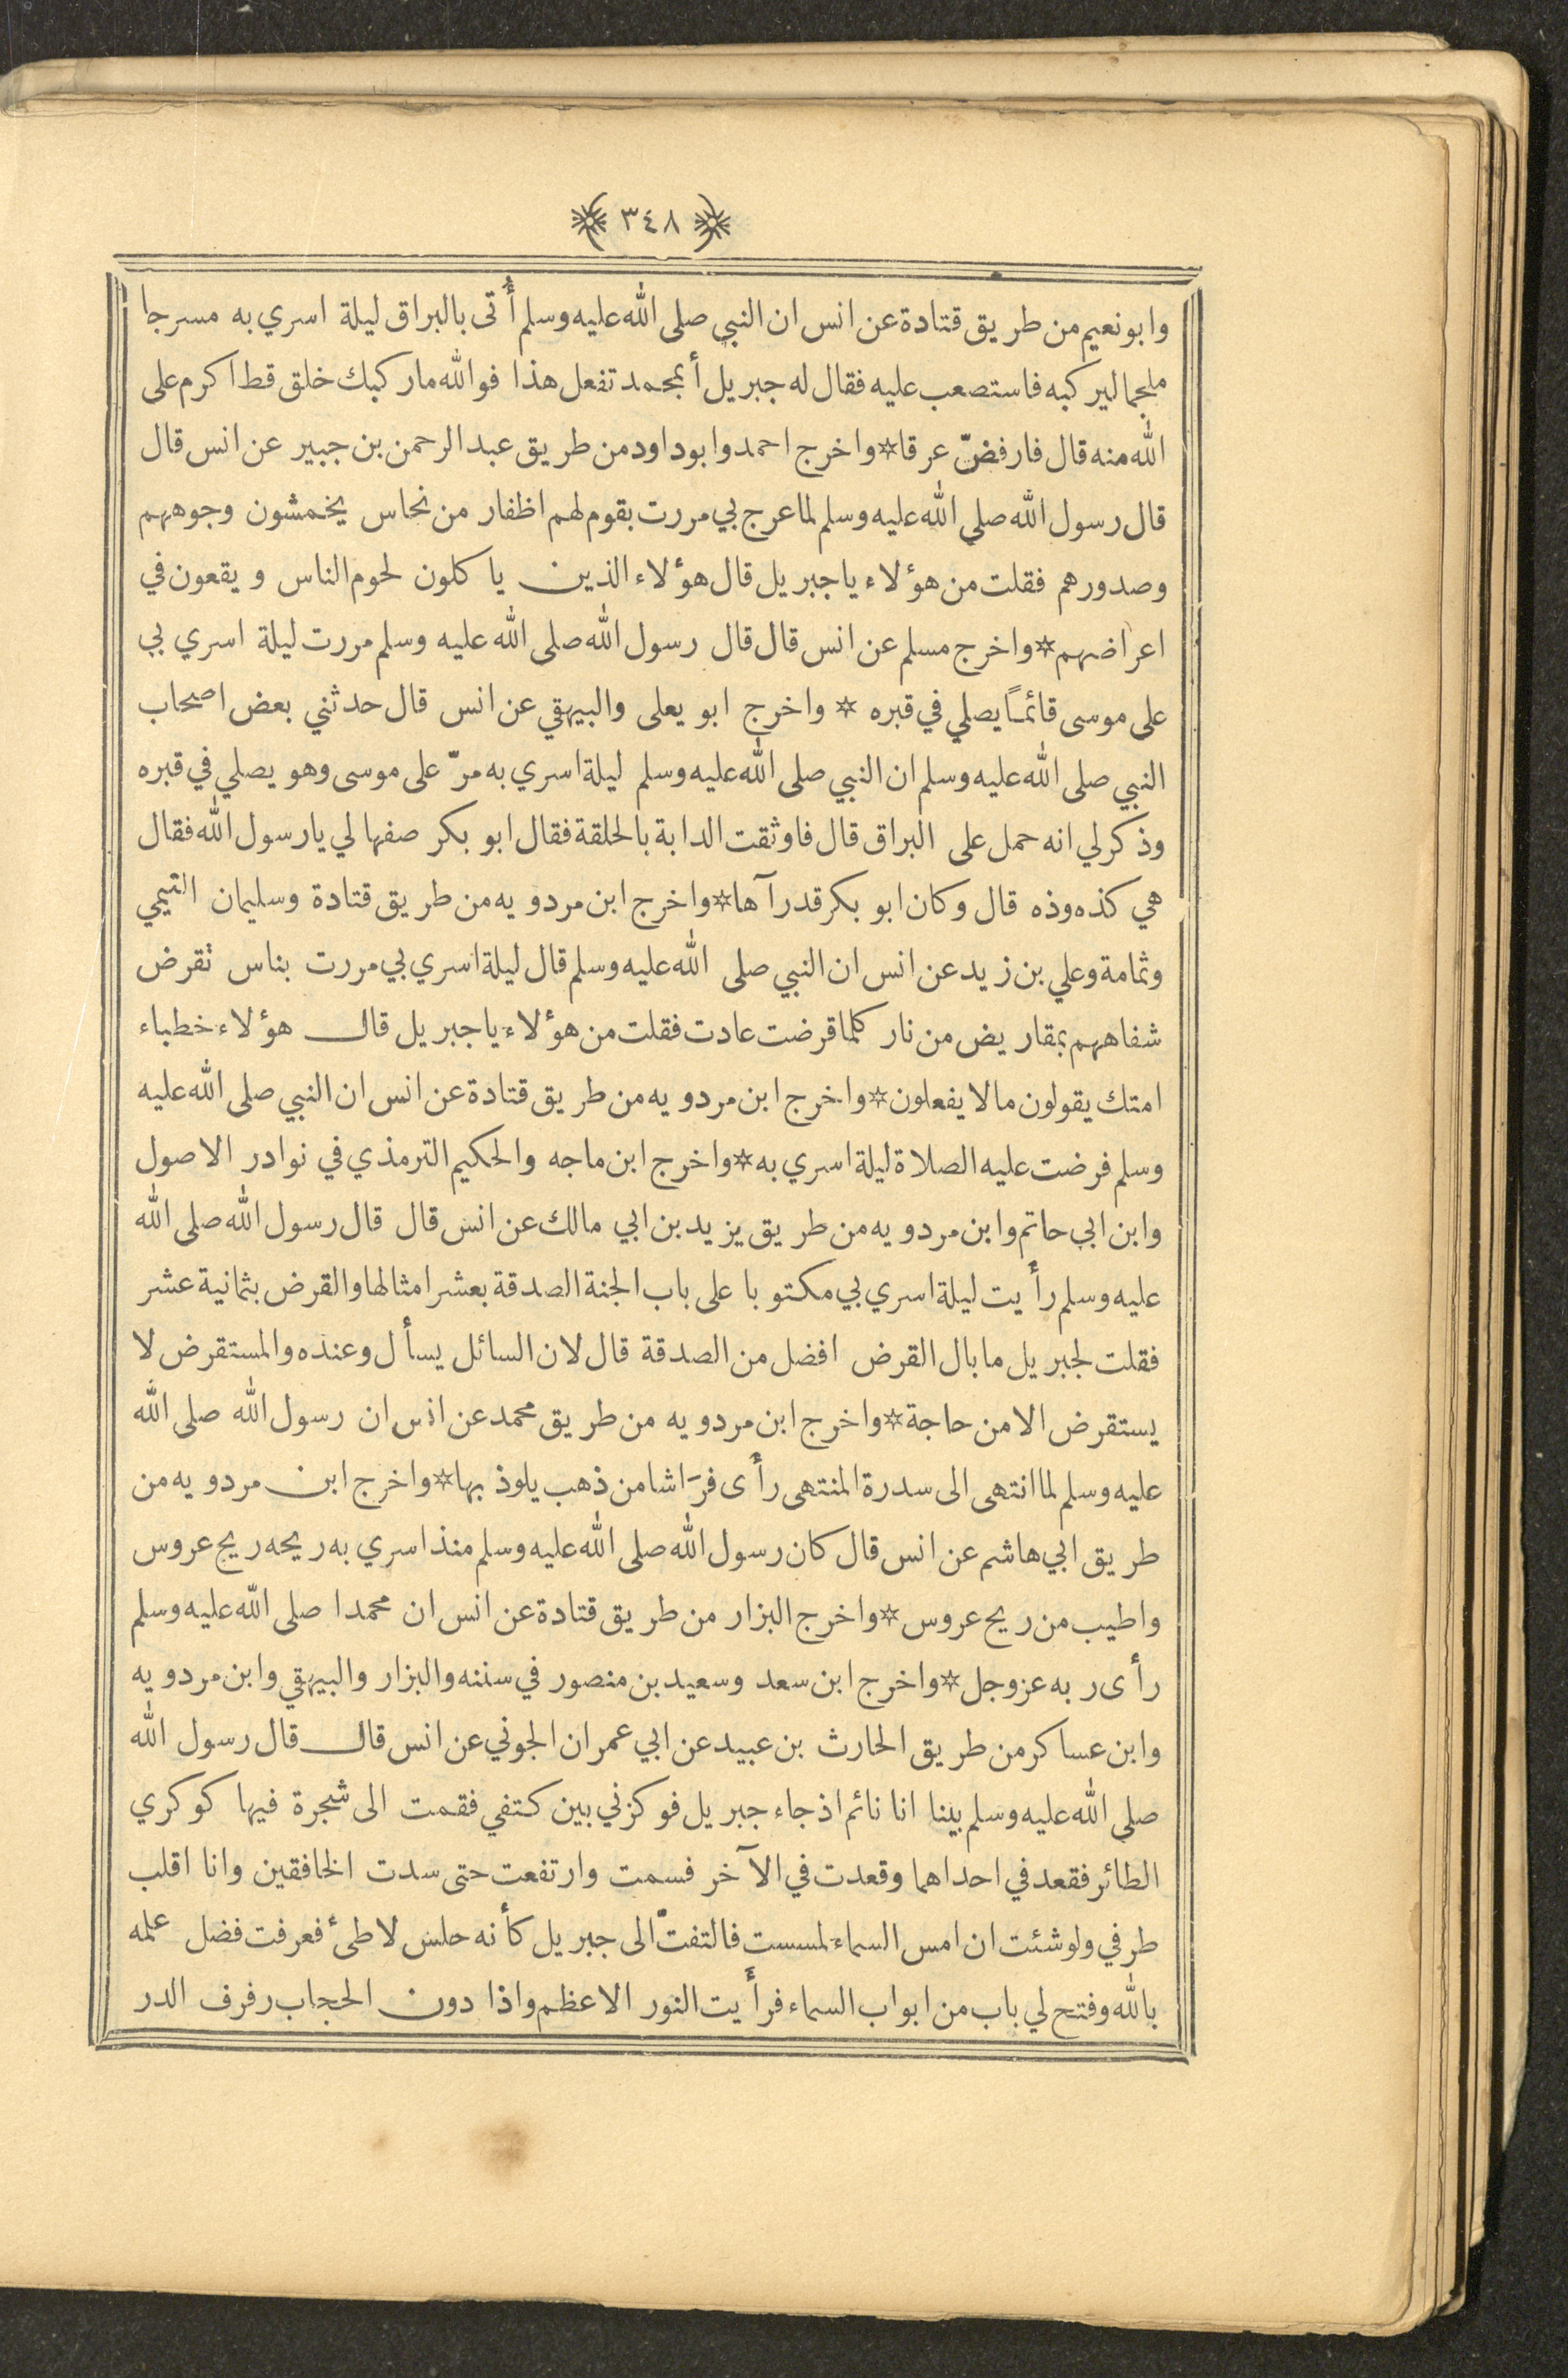 ٣٤٨
وابونعيم من طريق قتادة عن انس ان النبي صلى الله عليه وسلم أُتى بالبراق ليلة اسري به مسرجا
ملجما ليركبه فاستصعب عليه فقال له جبريل أبمحمد تفعل هذا فوالله ماركبك خلق قط اكرم على
الله منه قال فارفضّ عرقا * واخرج احمد وابوداود من طريق عبد الرحمن بن جبير عن انس قال
قال رسول الله صلى الله عليه وسلم لما عرج بي مررت بقوم لهم اظفار من نحاس يخمشون وجوههم
وصدورهم فقلت من هؤلاء ياجبريل قال هؤلاء الذين ياكلون لحوم الناس ويقعون في
اعراضهم * واخرج مسلم عن انس قال قال رسول الله صلى الله عليه وسلم مررت ليلة اسري بي
على موسى قائمًا يصلي في قبره * واخرج ابو يعلى والبيهقي عن انس قال حدثني بعض اصحاب
النبي صلى الله عليه وسلم ان النبي صلى الله عليه وسلم ليلة اسري به مرّ على موسى وهو يصلي في قبره
وذكر لي انه حمل على البراق قال فاوثقت الدابة بالحلقة فقال ابو بكر صفها لي يارسول الله فقال
هي كذه وذه قال وكان ابو بكر قد رآها * واخرج ابن مردويه من طريق قتادة وسليمان التيمي
وثمامة وعلي بن زيد عن انس ان النبي صلى الله عليه وسلم قال ليلة اسري بي مررت بناس تقرض
شفاههم بمقاريض من نار كلما قرضت عادت فقلت من هؤلاء ياجبريل قال هؤلاء خطباء
امتك يقولون مالا يفعلون * واخرج ابن مردويه من طريق قتادة عن انس ان النبي صلى الله عليه
وسلم فرضت عليه الصلاة ليلة اسري به * واخرج ابن ماجه والحكيم الترمذي في نوادر الاصول
وابن ابي حاتم وابن مردويه من طريق يزيد بن ابي مالك عن انس قال قال رسول الله صلى الله
عليه وسلم رأيت ليلة اسري بي مكتوبا على باب الجنة الصدقة بعشر امثالها والقرض بثمانية عشر
فقلت لجبريل مابال القرض افضل من الصدقة قال لان السائل يسأل وعنده والمستقرض لا
يستقرض الا من حاجة * واخرج ابن مردويه من طريق محمد عن انس ان رسول الله صلى الله
عليه وسلم لما انتهى الى سدرة المنتهى رأى فرَاشا من ذهب يلوذ بها * واخرج ابن مردويه من
طريق ابي هاشم عن انس قال كان رسول الله صلى الله عليه وسلم منذ اسري به ريحه ريح عروس
واطيب من ريح عروس * واخرج البزار من طريق قتادة عن انس ان محمدا صلى الله عليه وسلم
رأى ربه عزوجل * واخرج ابن سعد وسعيد بن منصور في سننه والبزار والبيهقي وابن مردويه
وابن عساكر من طريق الحارث بن عبيد عن ابي عمران الجوني عن انس قال قال رسول الله
صلى الله عليه وسلم بينا انا نائم اذ جاء جبريل فوكزني بين كتفي فقمت الى شجرة فيها كوكري
الطائر فقعد في احداهما وقعدت في الآخر فسمت وارتفعت حتى سدت الخافقين وانا اقلب
طرفي ولو شئت ان امس السماء لمسست فالتفتّ الى جبريل كأنه حلس لاطئ فعرفت فضل علمه
بالله وفتح لي باب من ابواب السماء فرأيت النور الاعظم واذا دون الحجاب رفرف الدر